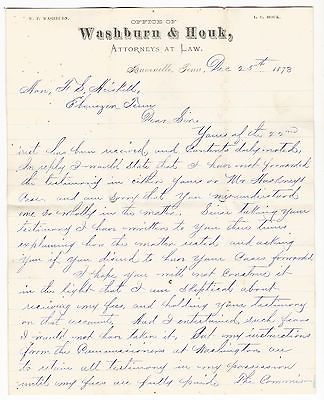 OFFICE OF
W. P. WASHBURN.
L. C. HOUK.
Washburn & Houk,
ATTORNEYS AT LAW.
Knoxville, Tenn, Dec 25th 1873
Hon,
Ebenezer Tenn
Dear Sir.
Yours of the 22nd
inst has been received, and contents duly noted.
In reply I would state that I have not forwarded
the testimony in either yours or Mr
Case, and am sorry that you misunderstood
me so in the matter. Since taking your
testimony I have written to you two times,
explaining how the matter rested and asking
you if you desired to have your Cases forwarded
I hope you will not Construe it
in the light that I am Skeptical about
receiving my fees, and holding your testimony
on that account. Had I entertained such fears
I would not have taken it. But my instructions
from the Commissioners at Washington are
to retain all testimony in my possession
until my fees are fully paid. The Commission